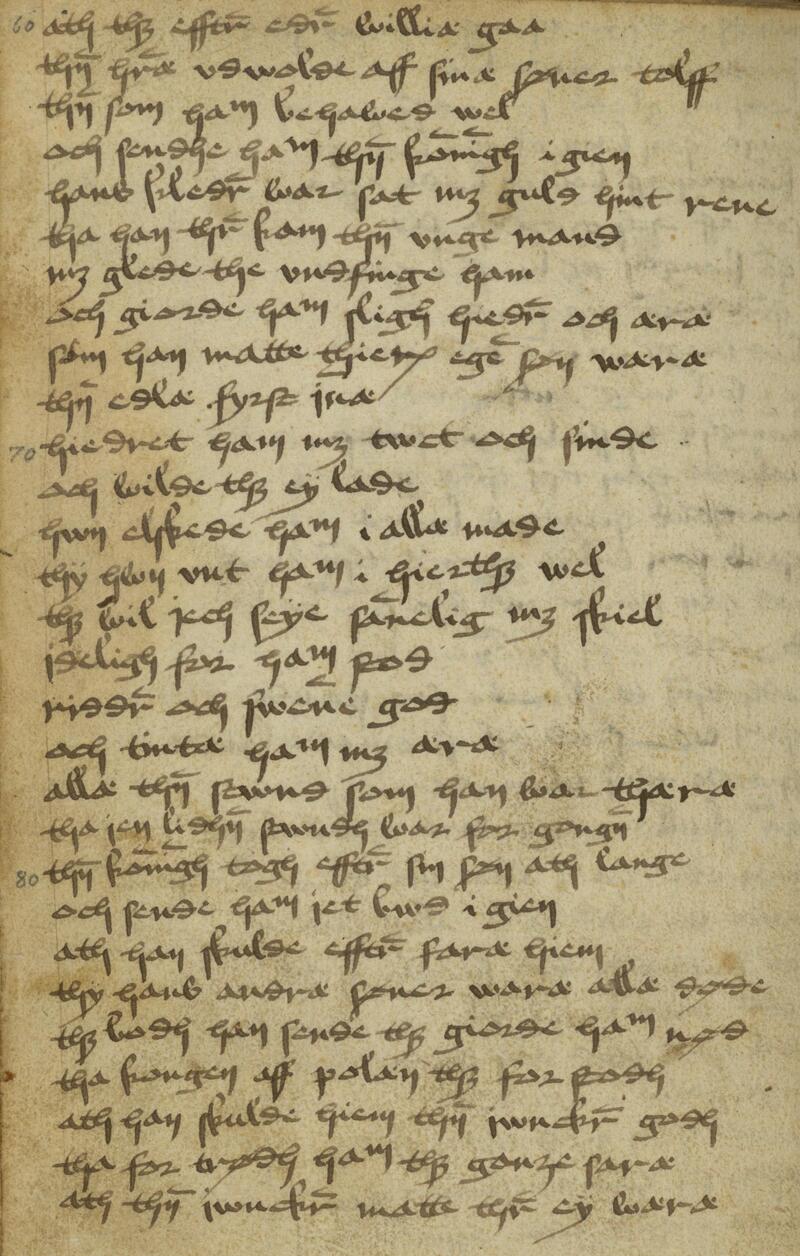 60 ath thꝫ efftr̄ edr̄ williæ gaa
thn̄ hr̄æ vdwolde aff sinæ søner tolff
thn̄ som ham behawed wel
och sendhe ham thn̄ kōnīgh i gien
hans kledr̄ war sat mꝫ guld hint rene
tha han thr̄ kam thn̄ vnge mand
mꝫ glede the vndfinge ham
och giorde ham sligh hiedr̄ och æræ
som han matte thieræ egē søn wæræ
thn̄ edlæ førstinæ
70 hiedret ham mꝫ twct och sinde
och wilde thꝫ ey lade
hwn elskede ham i allæ made
thy hwn vnt ham i hierthꝫ wel
thꝫ wil jech seye san̄elig mꝫ skiel
jdeligh for ham stod
riddr̄ och swen̄e god
och tintæ ham mꝫ æræ
allæ thn̄ stwnd som han war thæræ
tha jen lidhn̄ stwndh war for gongn̄
80 thn̄ kōnīgh togh efftr̄ sin søn ath lange
och sende ham jet bwd i gien
ath han skulde efftr̄ faræ hiem
thy hans andræ søner waræ allæ døde
thꝫ bodh han sende thꝫ giorde ham nød
tha kongen aff polan thꝫ for stodh
ath han skulde hiem thn̄ jwnckr̄ godh
tha for trødh ham thꝫ gantze saræ
ath thn̄ jwnckr̄ matte thr̄ ey wæræ